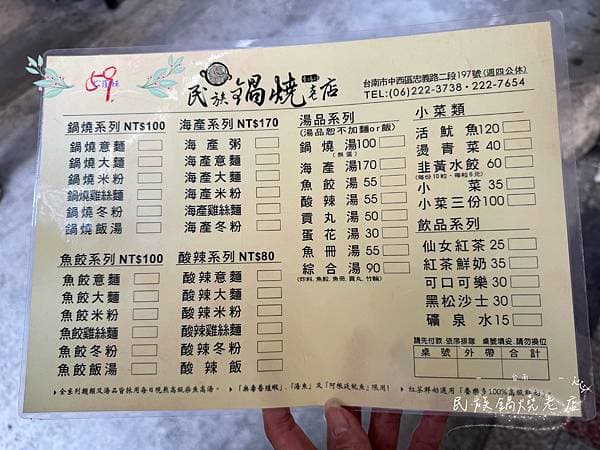 59
民族鍋燒老店
台南市中西區忠義路二段197號(週四公休)
TEL:(06)222-3738・222-7654
鍋燒系列 NT$100
鍋燒意麵
鍋燒大麵
鍋燒米粉
鍋燒雞絲麵
鍋燒冬粉
鍋燒飯湯
魚餃系列 NT$100
魚餃意麵
魚餃大麵
魚餃米粉
魚餃雞絲麵
魚餃冬粉
魚餃飯湯
海產系列 NT$170
海產粥
海產意麵
海產大麵
海產米粉
海產雞絲麵
海產冬粉
酸辣系列 NT$80
酸辣意麵
酸辣大麵
酸辣米粉
酸辣雞絲麵
酸辣冬粉
酸辣飯
湯品系列
(湯品恕不加麵or飯)
鍋燒湯100
(無蛋)
海產湯170
魚餃湯 55
酸辣湯 55
貢丸湯 50
蛋花湯 30
魚冊湯 55
綜合湯 90
(炸料、魚餃、魚冊、貢丸、竹輪)
小菜類
活魷魚120
燙青菜 40
韭黃水餃 60
(每份10粒，每粒6元)
小菜 35
小菜三份100
飲品系列
仙女紅茶 25
紅茶鮮奶 35
可口可樂 30
黑松沙士 30
礦泉水 15
請先付款、依序排隊 桌號填妥、請勿換位
桌號 外帶 合計
全系列麵類及湯品皆採用每日現熬高級柴魚高湯。
「無毒養殖蝦」、「海魚」及「阿根廷魷魚」限用!
紅茶鮮奶選用「養樂多100%高級鮮奶」
台南
民族鍋燒老店